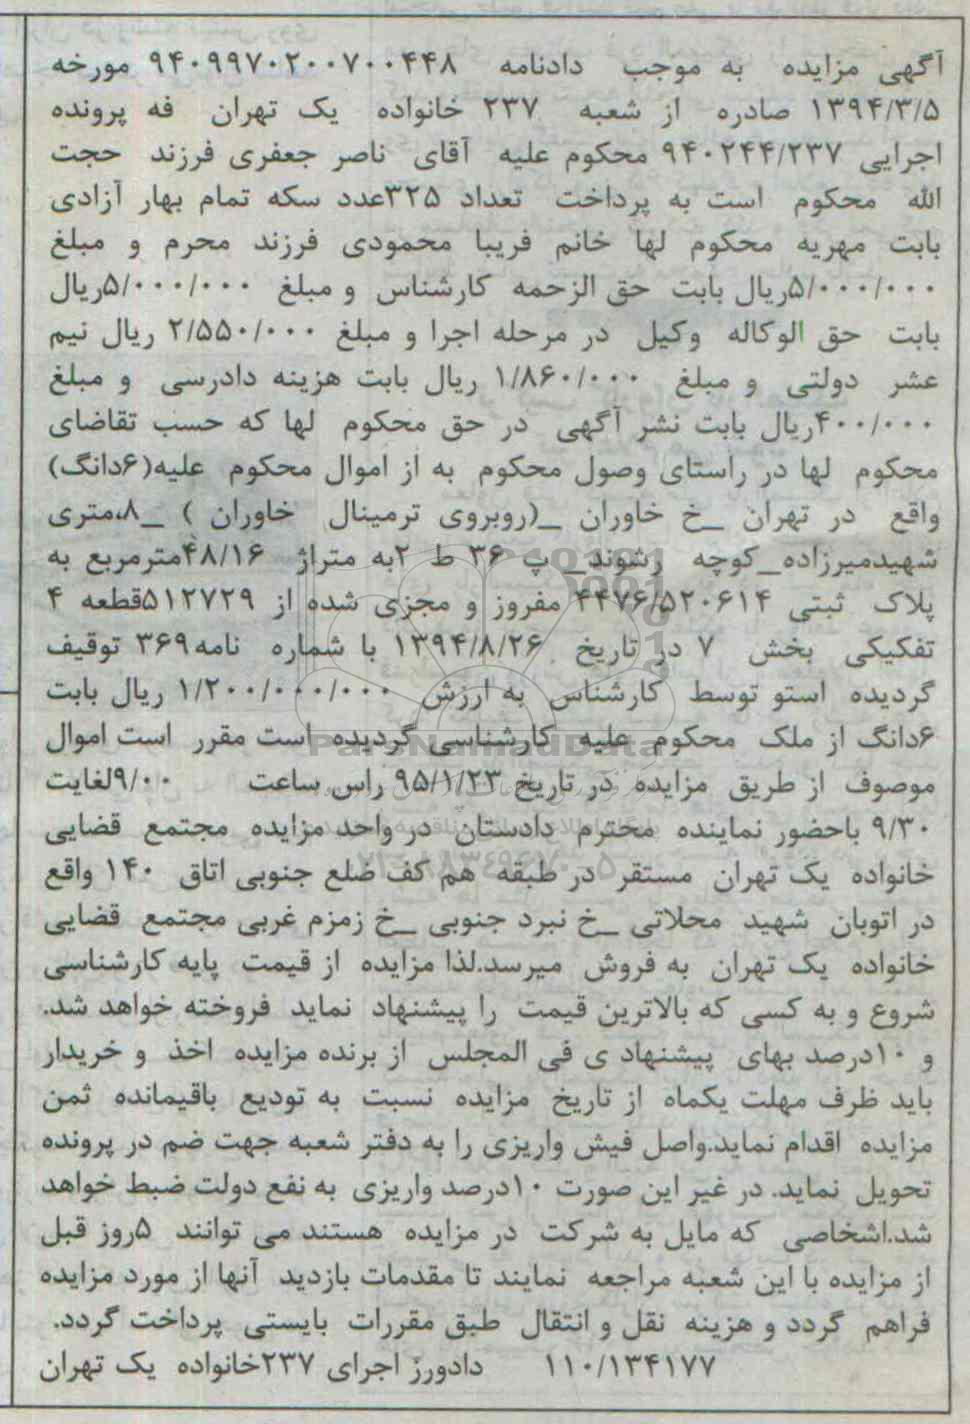 آگهی مزایده به موجب دادنامه ۹۴۰۹۹۷۰۲۰۰۷۰۰۴۴۸ مورخه
۱۳۹۴/۳/۵ صادره از شعبه ۲۳۷ خانواده یک تهران فه پرونده
اجرایی ۹۴۰۲۴۴/۲۳۷ محکوم علیه آقای ناصر جعفری فرزند حجت
الله محکوم است به پرداخت تعداد ۳۲۵عدد سکه تمام بهار آزادی
بابت مهریه محکوم لها خانم فریبا محمودی فرزند محرم و مبلغ
۵/۰۰۰/۰۰۰ریال بابت حق الزحمه کارشناس و مبلغ ۵/۰۰۰/۰۰۰ریال
بابت حق الوکاله وکیل در مرحله اجرا و مبلغ ۲/۵۵۰/۰۰۰ ریال نیم
عشر دولتی و مبلغ ۱/۸۶۰/۰۰۰ ریال بابت هزینه دادرسی و مبلغ
۴۰۰/۰۰۰ریال بابت نشر آگهی در حق محکوم لها که حسب تقاضای
محکوم لها در راستای وصول محکوم به از اموال محکوم علیه(۶دانگ)
واقع در تهران _خ خاوران _(روبروی ترمینال خاوران ) _۸،متری
شهیدمیرزاده_کوچه رشوند_ پ ۳۶ ط ۲به متراژ ۴۸/۱۶مترمربع به
پلاک ثبتی ۴۴۷۶/۵۲۰۶۱۴ مفروز و مجزی شده از ۵۱۲۷۲۹قطعه ۴
تفکیکی بخش ۷ در تاریخ ۱۳۹۴/۸/۲۶ با شماره نامه۳۶۹ توقیف
گردیده استو توسط کارشناس به ارزش ۱/۲۰۰/۰۰۰/۰۰۰ ریال بابت
۶دانگ از ملک محکوم علیه کارشناسی گردیده است مقرر است اموال
موصوف از طریق مزایده در تاریخ ۹۵/۱/۲۳ راس ساعت ۹/۰۰لغایت
۹/۳۰ باحضور نماینده محترم دادستان در واحد مزایده مجتمع قضایی
خانواده یک تهران مستقر در طبقه هم کف ضلع جنوبی اتاق ۱۴۰ واقع
در اتوبان شهید محلاتی _خ نبرد جنوبی _خ زمزم غربی مجتمع قضایی
خانواده یک تهران به فروش میرسد.لذا مزایده از قیمت پایه کارشناسی
شروع و به کسی که بالاترین قیمت را پیشنهاد نماید فروخته خواهد شد.
و ۱۰درصد بهای پیشنهاد ی فی المجلس از برنده مزایده اخذ و خریدار
باید ظرف مهلت یکماه از تاریخ مزایده نسبت به تودیع باقیمانده ثمن
مزایده اقدام نماید.واصل فیش واریزی را به دفتر شعبه جهت ضم در پرونده
تحویل نماید. در غیر این صورت ۱۰درصد واریزی به نفع دولت ضبط خواهد
شد.اشخاصی که مایل به شرکت در مزایده هستند می توانند ۵روز قبل
از مزایده با این شعبه مراجعه نمایند تا مقدمات بازدید آنها از مورد مزایده
فراهم گردد و هزینه نقل و انتقال طبق مقررات بایستی پرداخت گردد.
۱۱۰/۱۳۴۱۷۷ دادورز اجرای ۲۳۷خانواده یک تهران
ParsNamadData